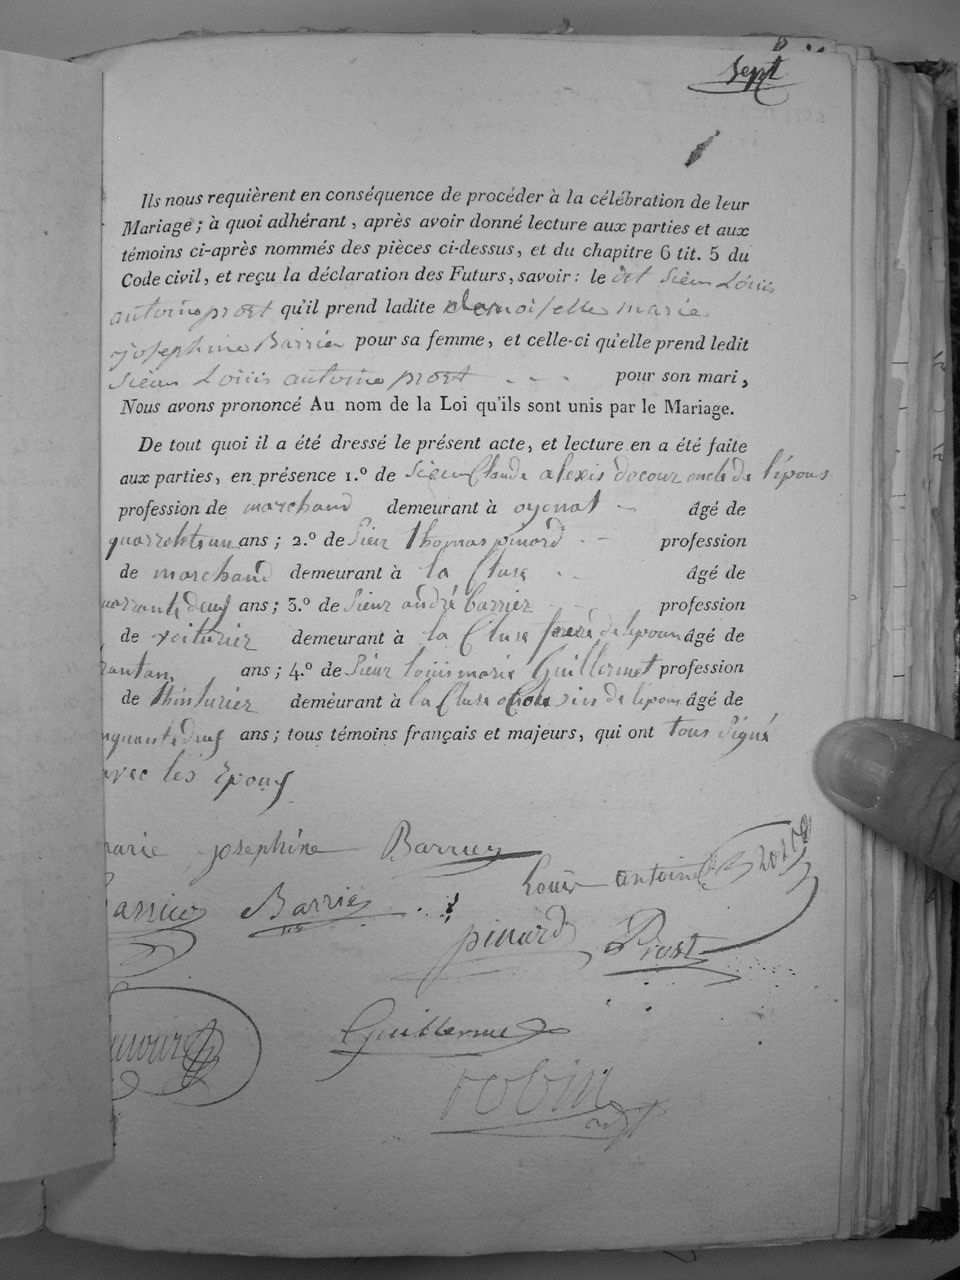 Sept
Ils nous requièrent en conséquence de procéder à la célébration de leur
Mariage ; à quoi adhérant , après avoir donné lecture aux parties et aux
témoins ci-après nommés des pièces ci-dessus, et du chapitre 6 tit. 5 du
Code civil, et reçu la déclaration des Futurs, savoir : le dit sieur Louis
antoine prost qu'il prend ladite demoiselle marie
josephine Barrier pour sa femme, et celle-ci qu'elle prend ledit
sieur Louis antoine prost - - - pour son mari,
Nous avons prononcé Au nom de la Loi qu'ils sont unis par le Mariage.
De tout quoi il a été dressé le présent acte, et lecture en a été faite
aux parties, en présence 1.º de Sieur Claude alexis oncle de l'épous
profession de marchand demeurant à oyonat - âgé de
ans ; 2.º de Sieur thomas pinard - - profession
de marchand demeurant à la Cluse - - âgé de
ans ; 3.º de Sieur andré barrier - - profession
de voiturier demeurant à la Cluse frere de lepoux âgé de
ans ; 4.º de Sieur louis marie Guillermet profession
de thinturier demeurant à la Cluse de lepoux âgé de
ans ; tous témoins français et majeurs, qui ont tous signé
avec les Epoux
marie josephine Barrier
Louis antoine prost
Barrier Barrier
pinard Prost
Guillermet
robin